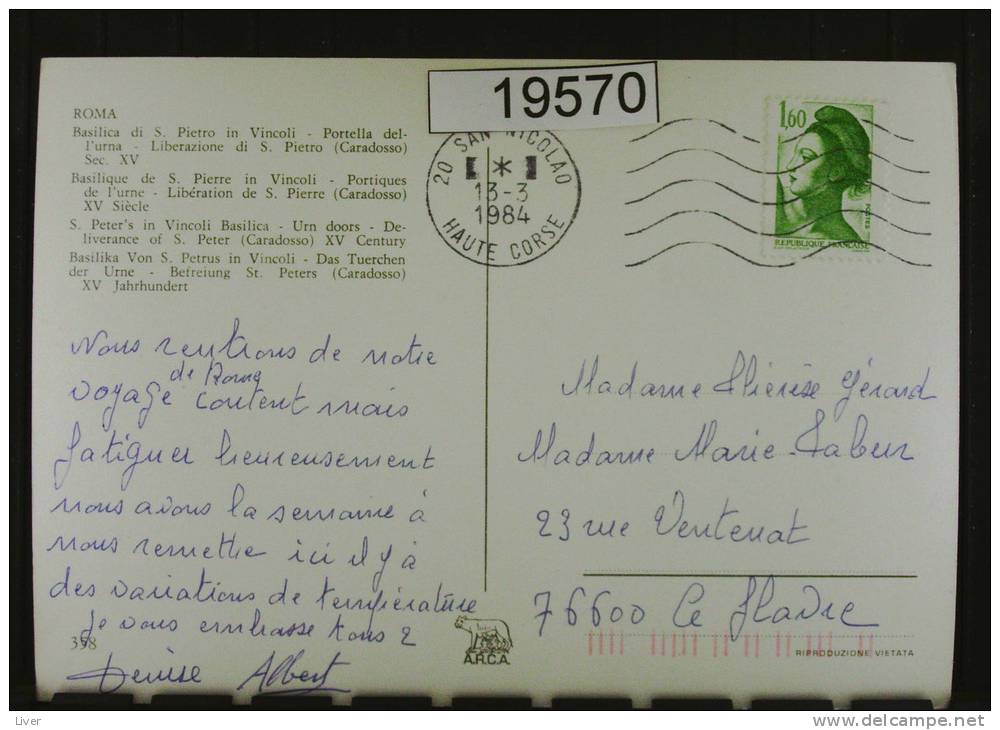 19570
ROMA
Basilica di S. Pietro in Vincoli - Portella del-
l'urna - Liberazione di S. Pietro (Caradosso)
Sec. XV
Basilique de S. Pierre in Vincoli - Portiques
de l'urne - Libération de S. Pierre (Caradosso)
XV Siècle
S. Peter's in Vincoli Basilica - Urn doors - De-
liverance of S. Peter (Caradosso) XV Century
Basilika Von S. Petrus in Vincoli - Das Tuerchen
der Urne - Befreiung St. Peters (Caradosso)
XV Jahrhundert
20 SAN NICOLAO
13-3
1984
HAUTE CORSE
1,60
POSTES
REPUBLIQUE FRANÇAISE
Nous rentrons de notre
de Rome
voyage content mais
fatiguer heureusement
nous avons la semaine à
nous remettre ici il y à
des variations de température
Je vous embrasse tous 2
Denise Albert
Madame Thérèse Gérard
Madame Marie
23 rue Ventenat
76600 Le Havre
358
A.R.C.A.
RIPRODUZIONE VIETATA
Liver
delcampe.net